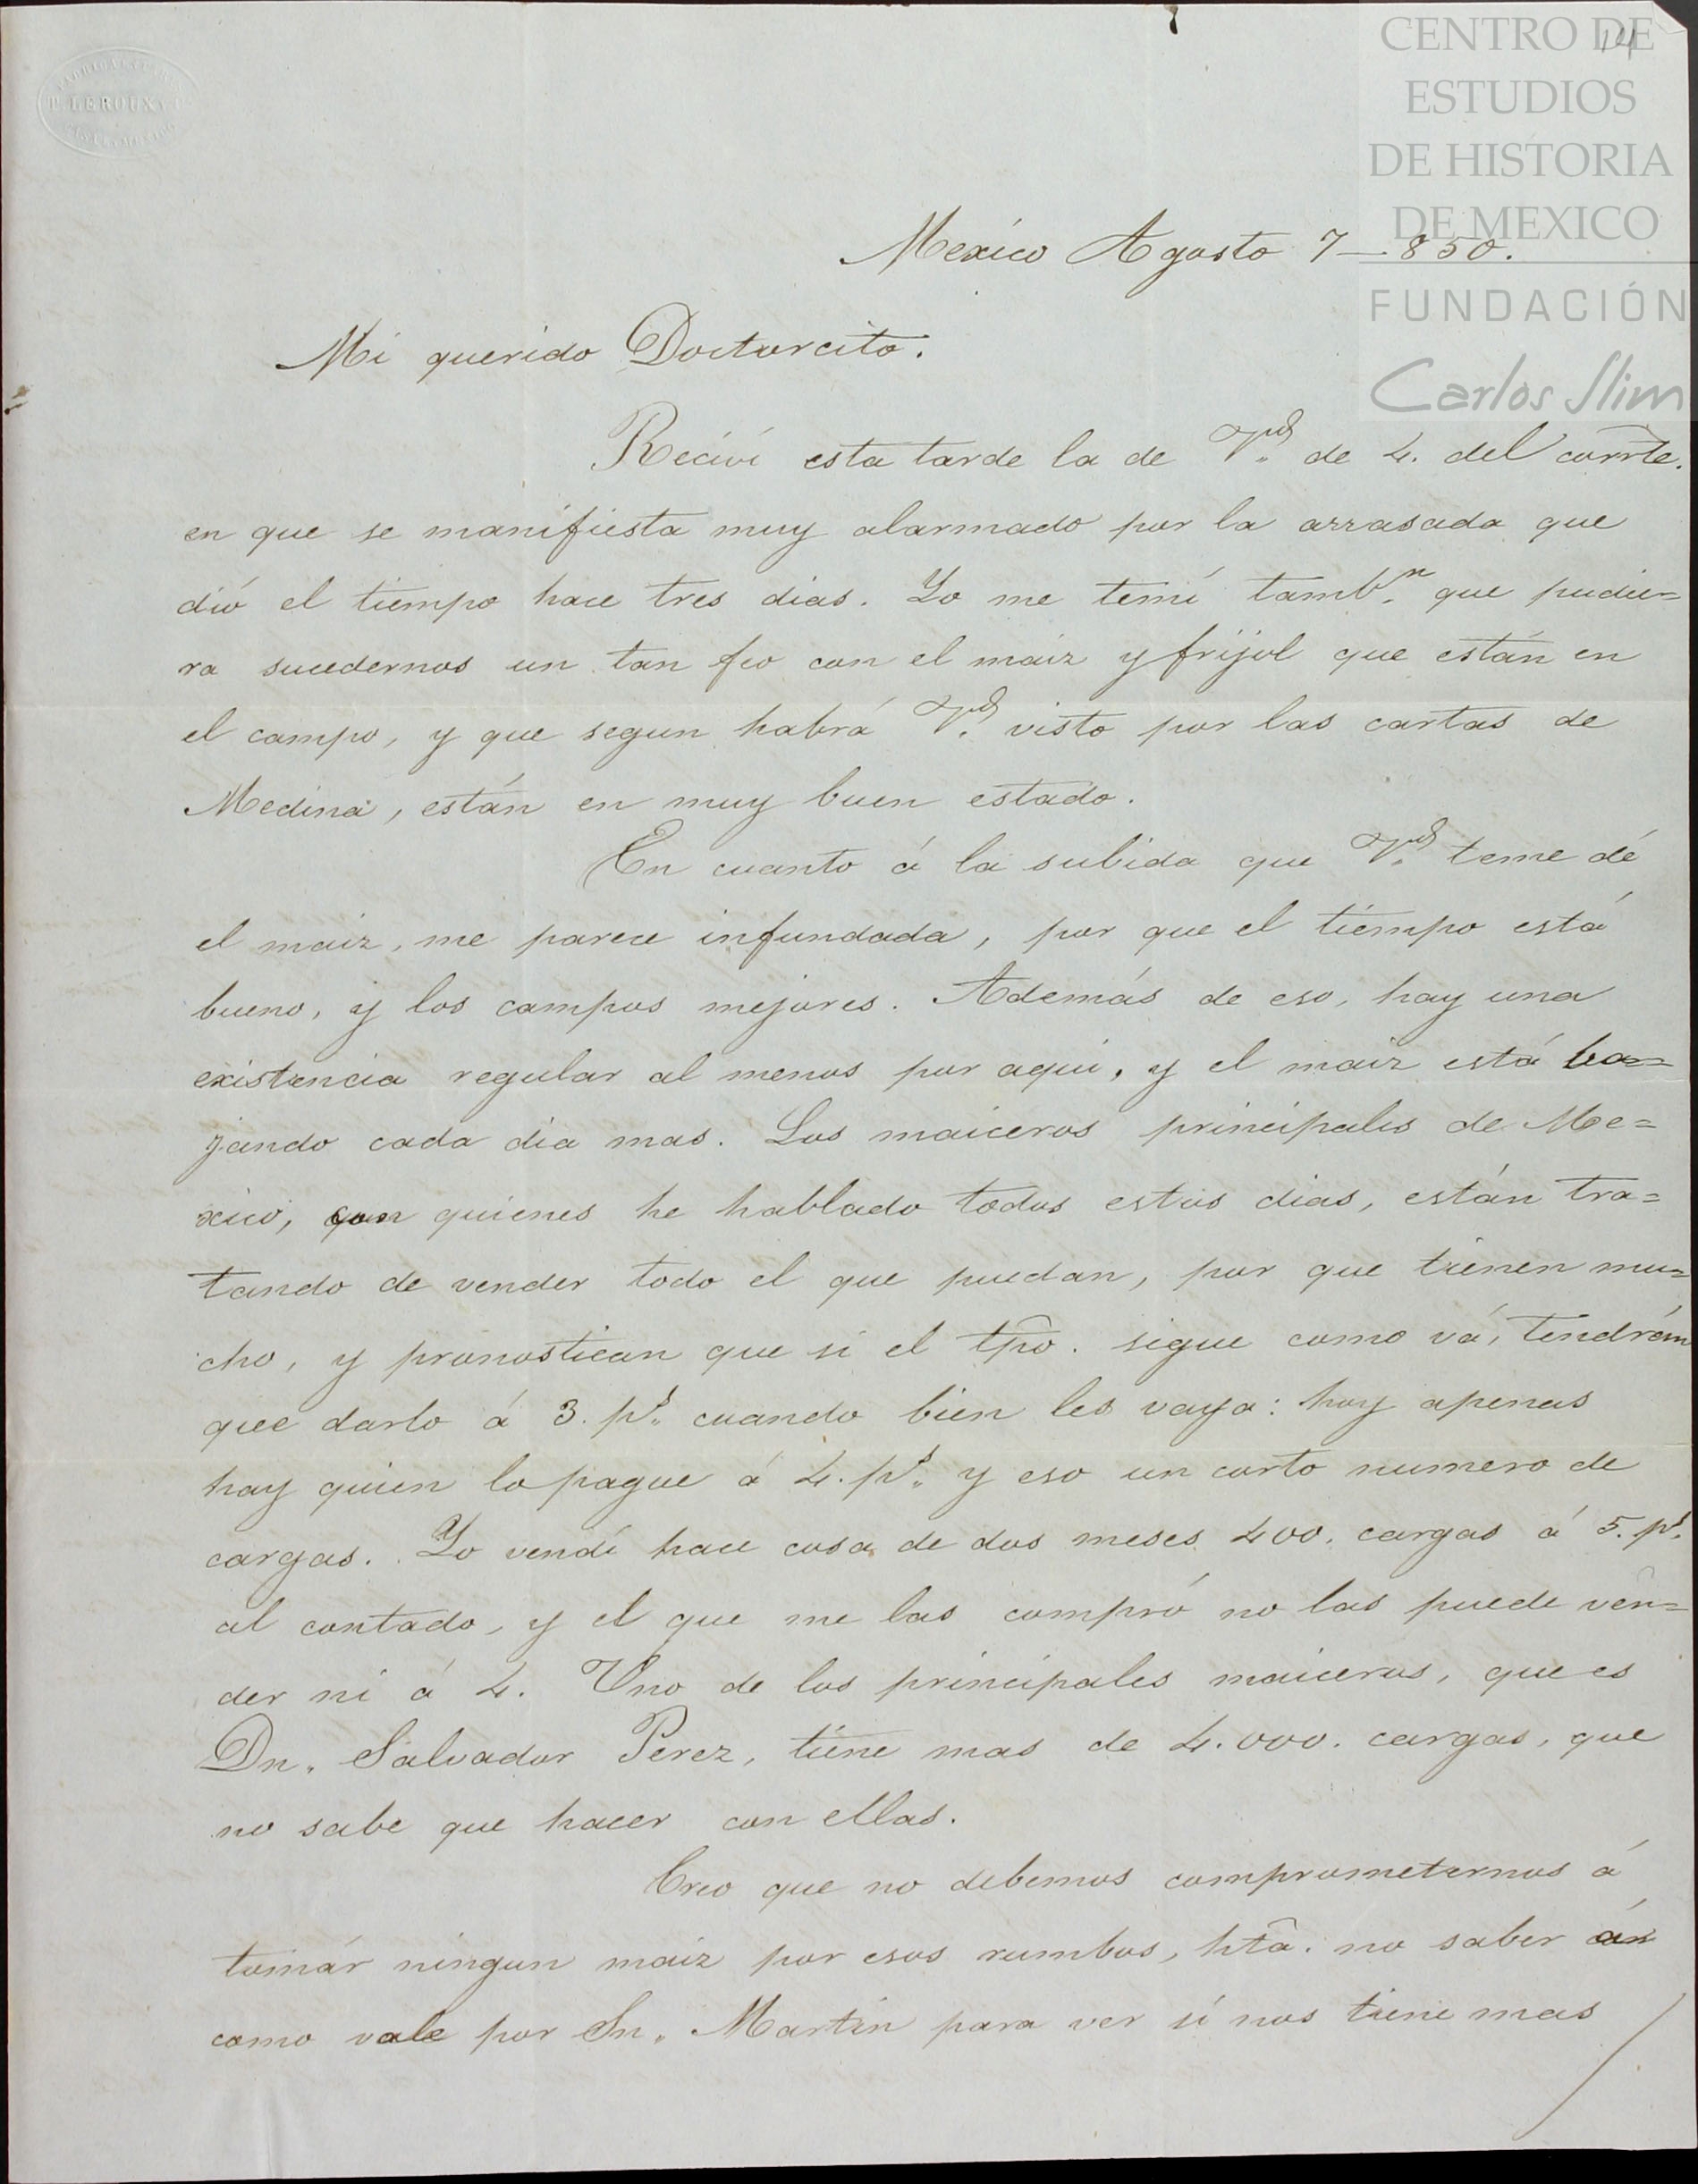 14
CENTRO DE
ESTUDIOS
DE HISTORIA
DE MEXICO
FUNDACIÓN
Carlos Slim
P. LEROUX
Mexico Agosto 7—850.
Mi querido Doctorcito.
Reciví esta tarde la de Vd. de 4. del corrte.
en que se manifiesta muy alarmado por la arrasada que
dió el tiempo hace tres dias. Yo me temí tambn. que pudie=
ra sucedernos un tan feo con el maiz y frijol que están en
el campo, y que segun habrá Vd. visto por las cartas de
Medina, están en muy buen estado.
En cuanto á la subida que Vd. teme dé
el maiz, me parece infundada, por que el tiempo está
bueno, y los campos mejores. Además de eso, hay una
existencia regular al menos por aqui, y el maiz está ba=
jando cada dia mas. Los maiceros principales de Me=
xico, con quienes he hablado todos estos dias, están tra=
tando de vender todo el que puedan, por que tienen mu=
cho, y pronostican que si el tpo. sigue como vá, tendrám
que darlo á 3. ps. cuando bien les vaya: hoy apenas
hay quien lo pague á 4. ps. y eso un corto numero de
cargas. Yo vendí hace cosa de dos meses 400. cargas á 5. ps.
al contado, y el que me las compró no las puede ven=
der ni á 4. Uno de los principales maiceros, que es
Dn. Salvador Perez, tiene mas de 4.000. cargas, que
no sabe que hacer con ellas.
Creo que no debemos comprometernos á
tomár ningun maiz por esos rumbos, hta. no saber á
como vale por Sn. Martin para ver si nos tiene mas